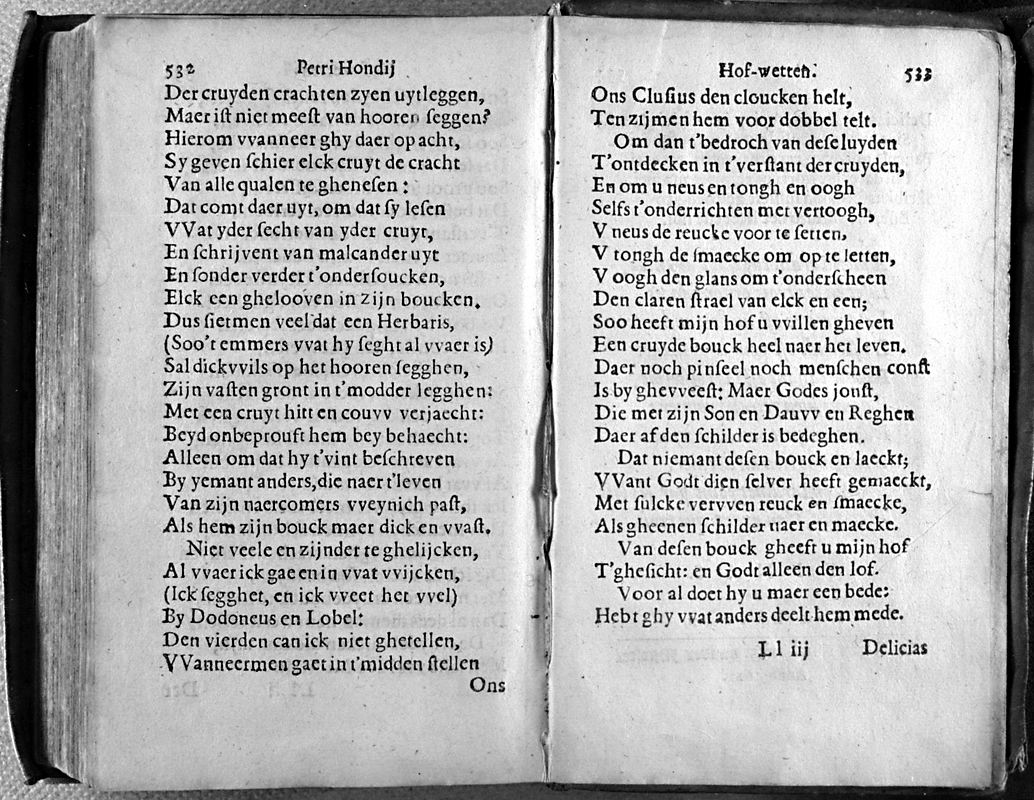 532 Petri Hondij
Der cruyden crachten zyen uytleggen,
Maer iſt niet meeſt van hooren ſeggen?
Hierom vvanneer ghy daer op acht,
Sy geven ſchier elck cruyt de cracht
Van alle qualen te gheneſen:
Dat comt daer uyt, om dat ſy leſen
VVat yder ſecht van yder cruyt,
En ſchrijvent van malcander uyt
En ſonder verder t'onderſoucken,
Elck een ghelooven in zijn boucken.
Dus ſietmen veel dat een Herbaris,
(Soo't emmers vvat hy ſeght al vvaer is)
Sal dickvvils op het hooren ſegghen,
Zijn vaſten gront in t'modder legghen:
Met een cruyt hitt en couvv verjaecht:
Beyd onbeprouft hem bey behaecht:
Alleen om dat hy t'vint beſchreven
By yemant anders, die naer t'leven
Van zijn naercomers vveynich paſt,
Als hem zijn bouck maer dick en vvaſt.
Niet veele en zijnder te ghelijcken,
Al vvaer ick gae en in vvat vvijcken,
(Ick ſegghet, en ick vveet het vvel)
By Dodoneus en Lobel:
Den vierden can ick niet ghetellen,
VVanneermen gaet in t'midden ſtellen
Ons
Hof-wetten. 533
Ons Cluſius den cloucken helt,
Ten zij men hem voor dobbel telt.
Om dan t'bedroch van deſe luyden
T'ontdecken in t'verſtant der cruyden,
En om u neus en tongh en oogh
Selfs t'onderrichten met vertoogh,
V neus de reucke voor te ſetten,
V tongh de ſmaecke om op te letten,
V oogh den glans om t'onderſcheen
Den claren ſtrael van elck en een;
Soo heeft mijn hof u vvillen gheven
Een cruyde bouck heel naer het leven.
Daer noch pinſeel noch menſchen conſt
Is by ghevveeſt: Maer Godes jonſt,
Die met zijn Son en Dauvv en Reghen
Daer af den ſchilder is bedeghen.
Dat niemant deſen bouck en laeckt;
VVant Godt dien ſelver heeft gemaeckt,
Met ſulcke vervven reuck en ſmaecke,
Als gheenen ſchilder naer en maecke.
Van deſen bouck gheeft u mijn hof
T'gheſicht: en Godt alleen den lof.
Voor al doet hy u maer een bede:
Hebt ghy vvat anders deelt hem mede.
Ll iij Delicias